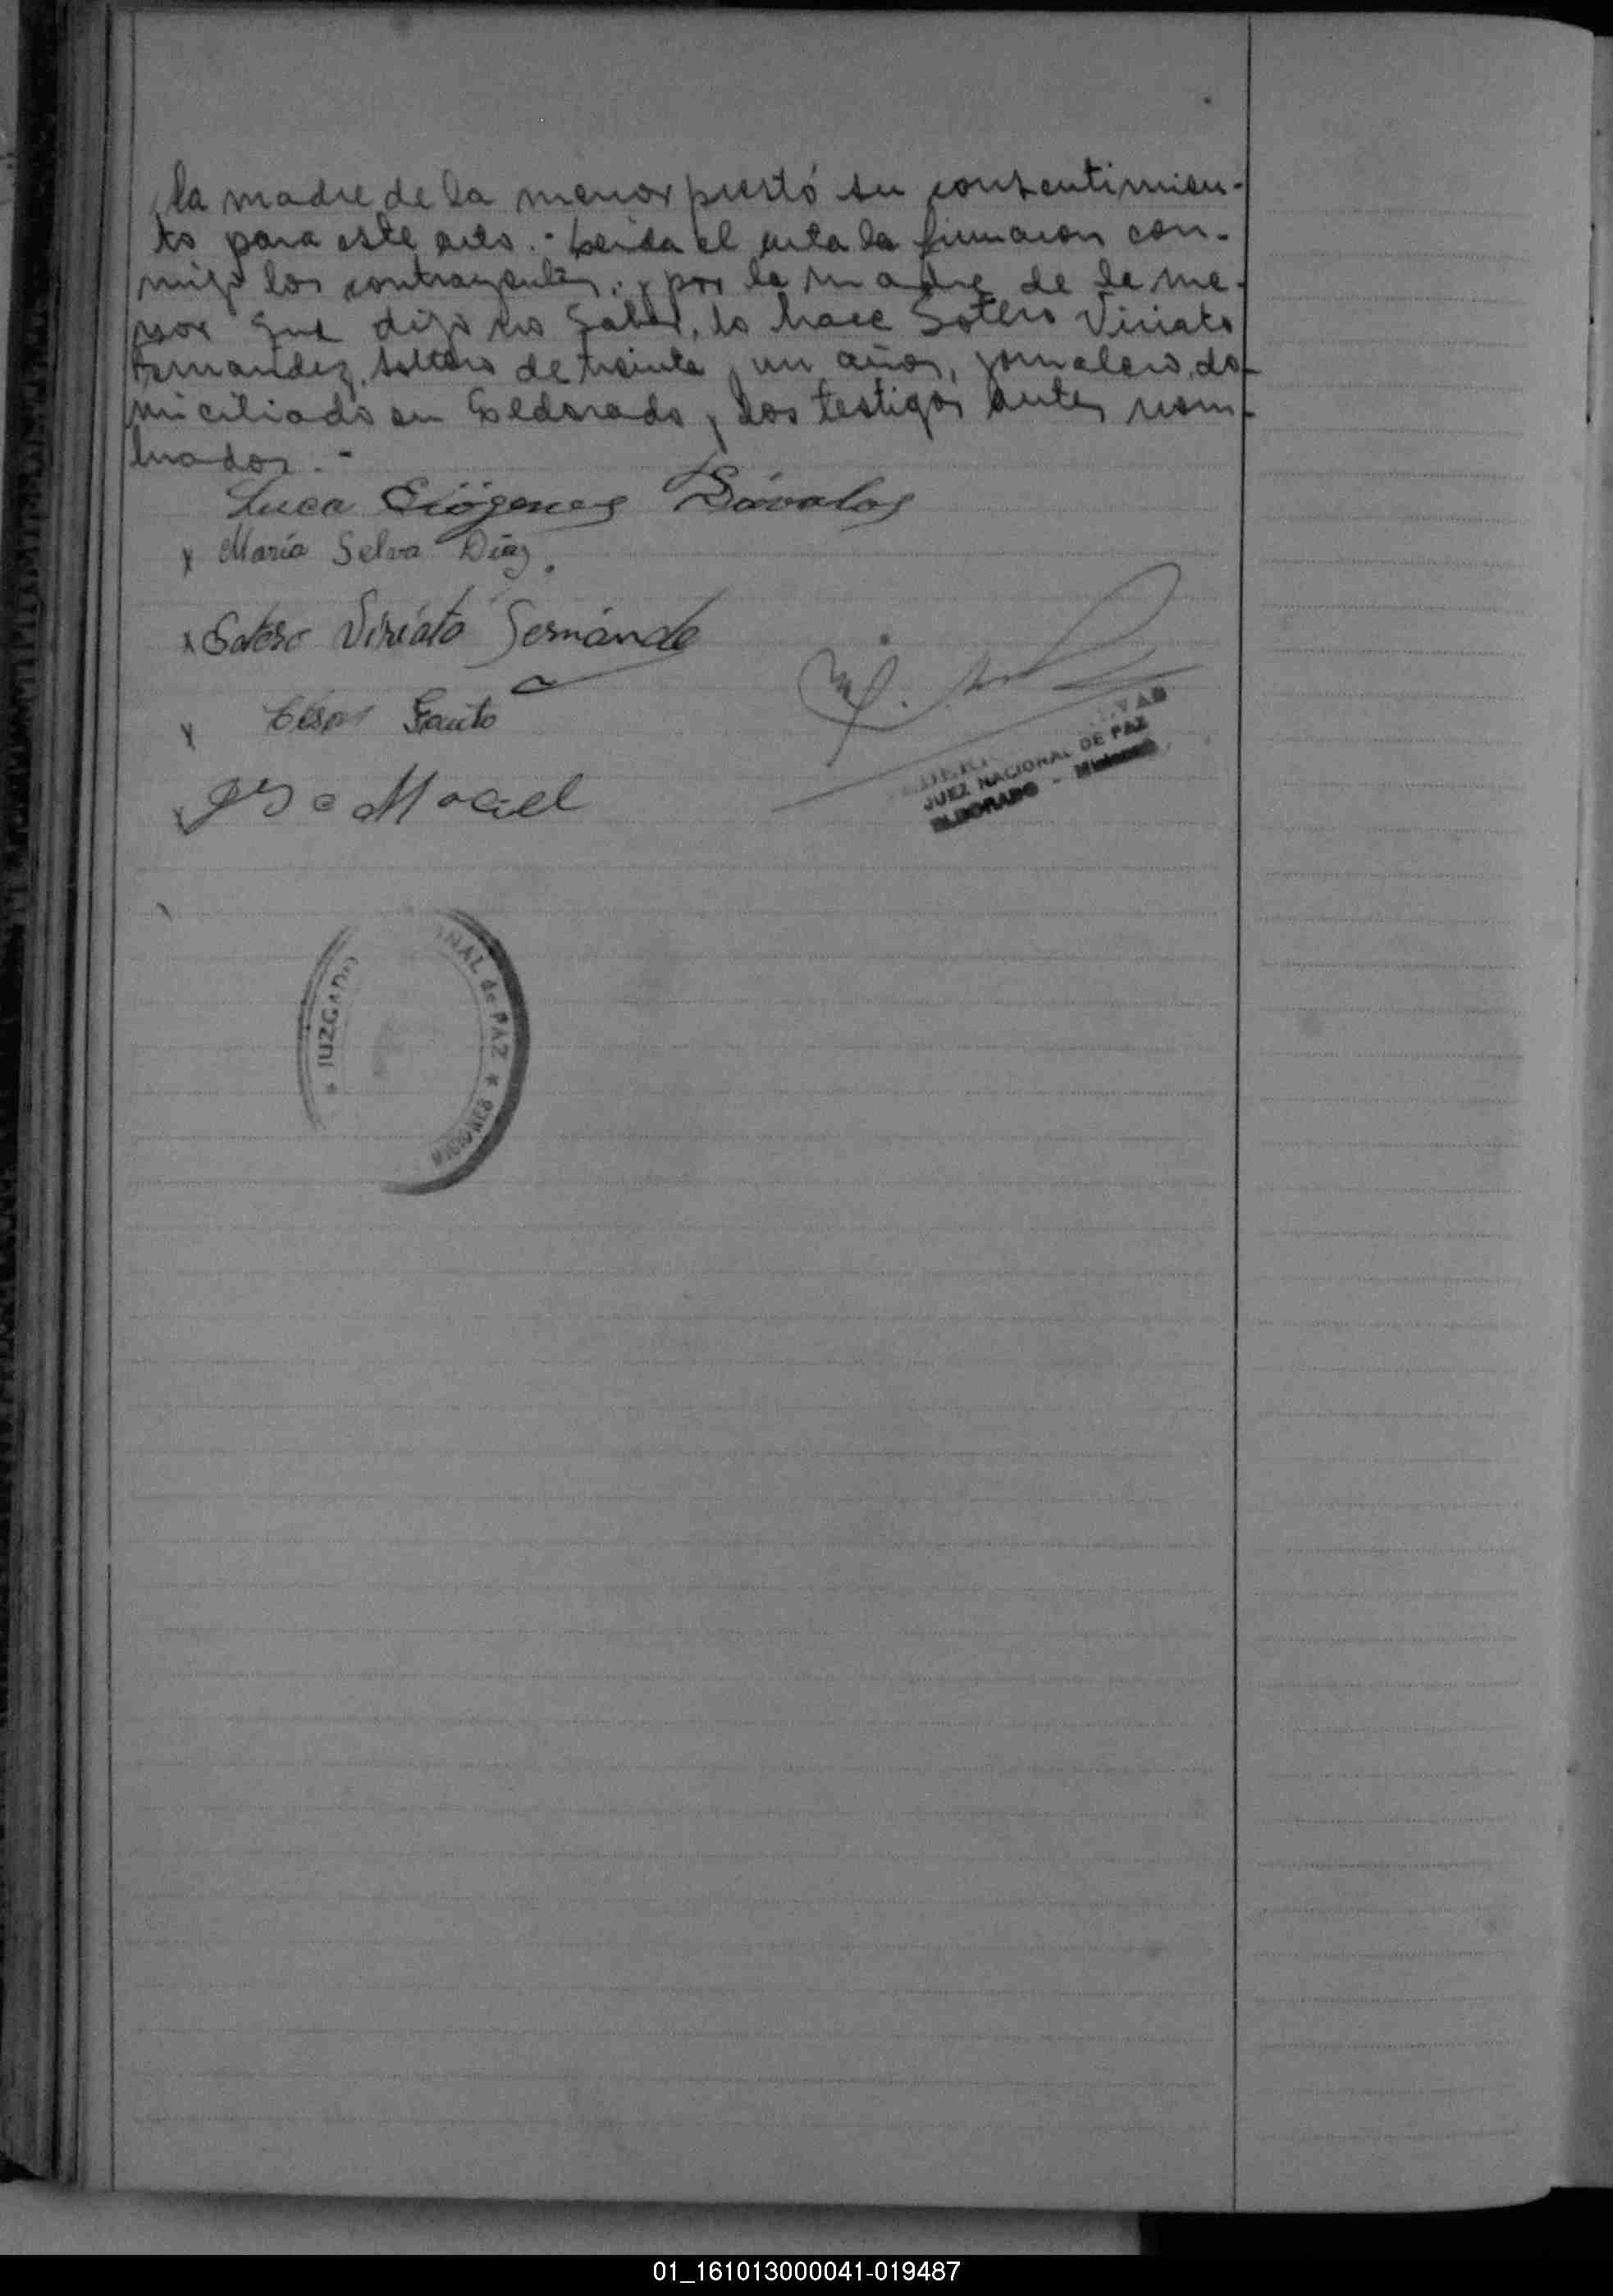 la madre de la menor prestó su consentimien-
to para este acto.- Leida el acta la firmaron con-
migo los contrayentes, y por la madre de la me-
nor que dijo no saber, lo hace Sotero Viriato
Fernandez, soltero de treinta y un años, jornalero, do-
miciliado en Eldorado y los testigos antes nom-
brados.-
Luca Diógenes Dávalos
x María Selva Díaz.
x Sotero Viriato Fernánde
x César Fauto
x Maciel
JUEZ NACIONAL DE PAZ
ELDORADO - Misiones
* JUZGADO NAL de PAZ * MISIONES
01_161013000041-019487